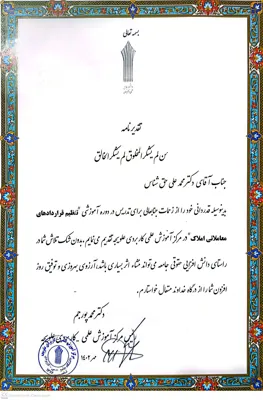 بسمه تعالی
تقدیرنامه
من لم یشکر المخلوق لم یشکر الخالق
جناب آقای دکتر محمد علی حق شناس
بدینوسیله قدردانی خود را از زحمات جنابعالی برای تدریس در دوره آموزشی "تنظیم قراردادهای
معاملاتی املاک" در مرکز آموزش علمی کاربردی علویجه تقدیم می نمایم، بدون شک تلاش شما در
راستای دانش افزایی حقوقی جامعه می تواند منشاء اثر بسیاری باشد، آرزوی بهروزی و توفیق روز
افزون شما را از درگاه خداوند متعال خواستارم.
دکتر محمد پورجم
رئیس مرکز آموزش علمی - کاربردی علویجه
مهر ۱۴۰۲